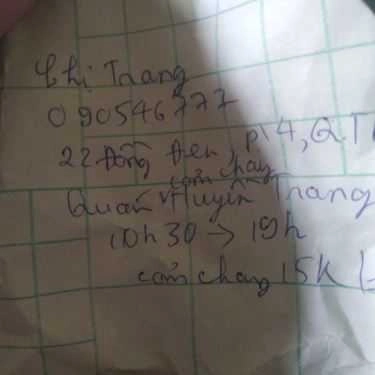 Chị Trang
090546777
22 Đống Đen, P\4, Q.T
cơm chay
Quán Huyền Trang
10h30 → 19h
cơm chay 15K (